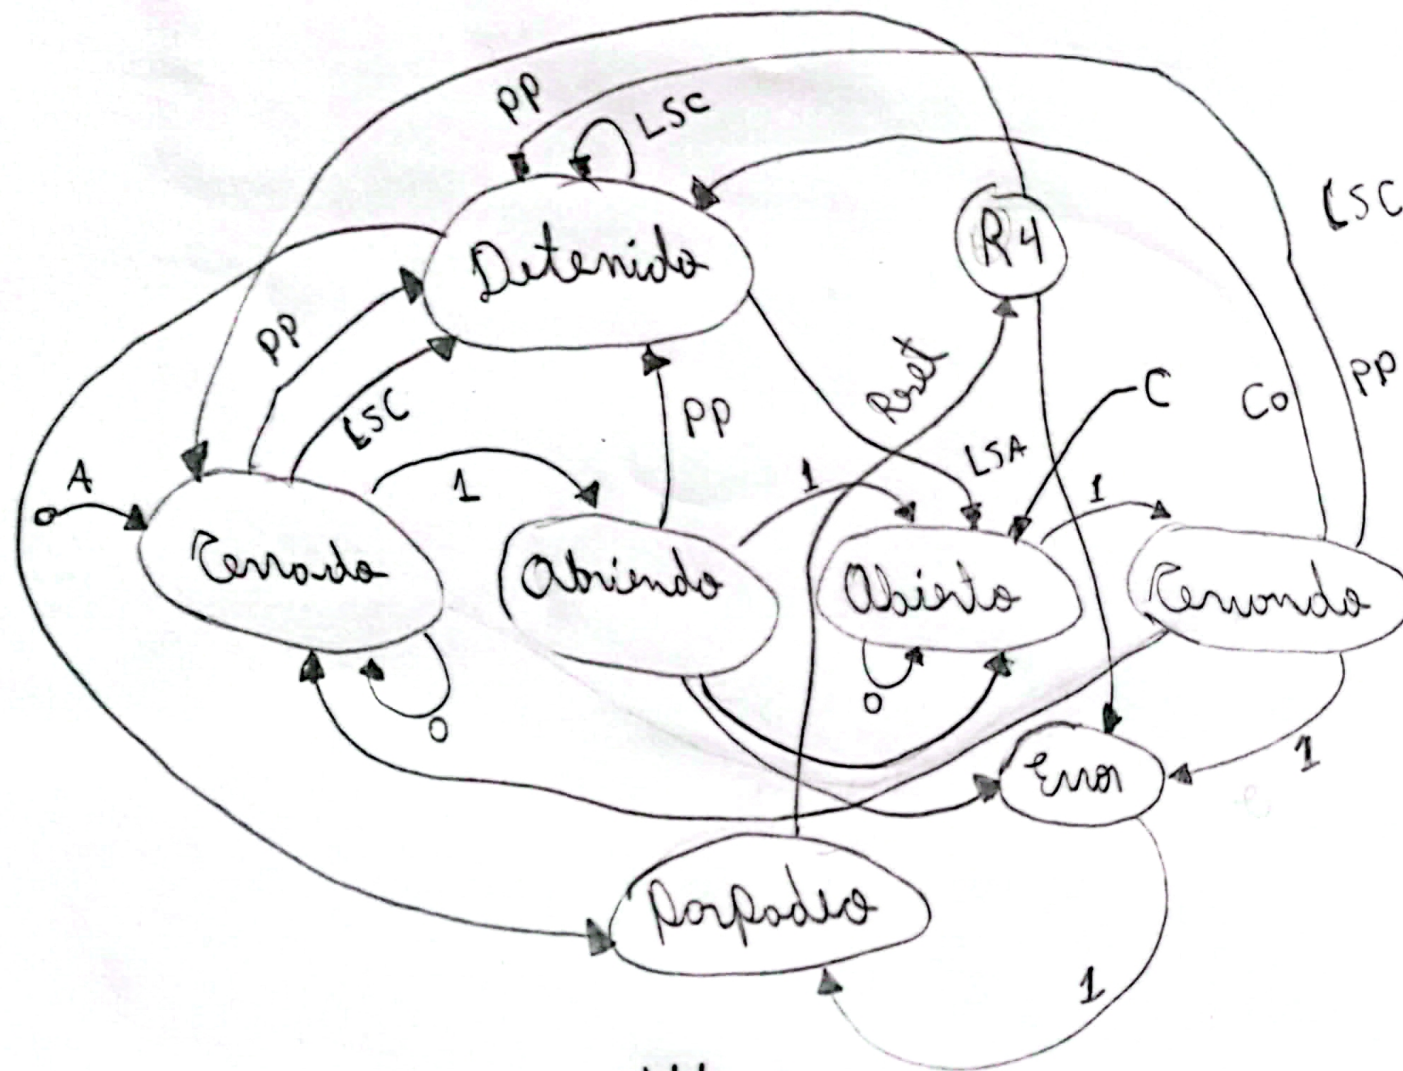 PP
LSC
LSC
Detenido
R4
PP
LSC
PP
Reset
LSA
C
Co
PP
A
1
1
1
Cerrado
Abriendo
Abierto
Cerrando
0
0
Error
1
Parpadeo
1